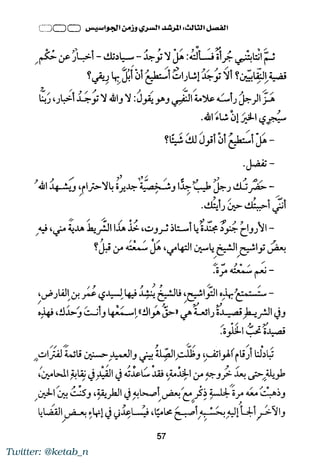 الفصل الثالث، المرشد السري وزمن الجواسيس
ثـمَّ انْتابتْـني جُرأةٌ فَسـأَلْتُه: هَلْ لا تُوجدُ - سـيادتك - أخبـارٌ عن حُكْمِ
قضية النِّقابيِّين؟ ألَا تُوجَدُ إشاراتٌ أستطيعُ أنْ أبُلَّ بِها ريقي؟
هَـزَّ الرجلُ رأسَـه علامةَ النَّفيي وهو يقولُ: لا والله لا تُوجَـدُ أخبار، ربُّنا
سيُجرِي الخيرَ إنْ شاءَ الله.
- هَلْ أستطيعُ أنْ أقولَ لكَ شيئًا؟
- تفضل.
- حَضْرتُـك رجلٌ طيبٌ جدًّا وشَـخْصيَّةٌ جديرةٌ بالاحترامِ، ويَشـهدُ اللهُ
أنَّني أحببتُك حينَ رأيتُك.
- الأرواحُ جُنودٌ مُجنَّدةٌ يا أسـتاذ ثـروت، خُذْ هَذا الشَّريطَ هديةً مني، فيهِ
بعضُ تواشيح الشيخ ياسين التهامي، هَلْ سَمعْتَه من قبلُ؟
- نعَم سَمعْتُه مَرَّةً.
- سَتَستَمتعُ بهذِه التَّواشيحِ، فالشيخُ يُنشِدُ فيها لِسيدِي عُمَرَ بن الفارضِ،
وفي الشريـطِ قصيـدةٌ رائعـةٌ هي «حقُّ هَواك» اِسـمَعْها وأنـتَ وَحدَك، فهذِه
قصيدةٌ تحبُّ الخَلْوة.
تَبادلْنا أرقامَ الهواتفِ، وظلَّت الصِّلةُ بيني والعميد حسنين قائمةً لفَتَراتٍ
طويلةٍ حتى بعدَ خُروجِهِ مِن الخِدْمةِ، فقدْ ساعدْتُه في القَيْدِ في نِقابةِ المحامينَ،
وذهبْتُ معَه مرةً لجلسةِ ذِكْرٍ معَ بعضِ أصحابِه في الطريقةِ، وكنْتُ بينَ الحينِ
والآخَـر ألجـأُ إليهِ بِحَسْـبِه أصبـحَ محاميًا، فيُسـاعِدُني في إنهاءِ بعـضِ القضَايا
57
Twitter: @ketab_n